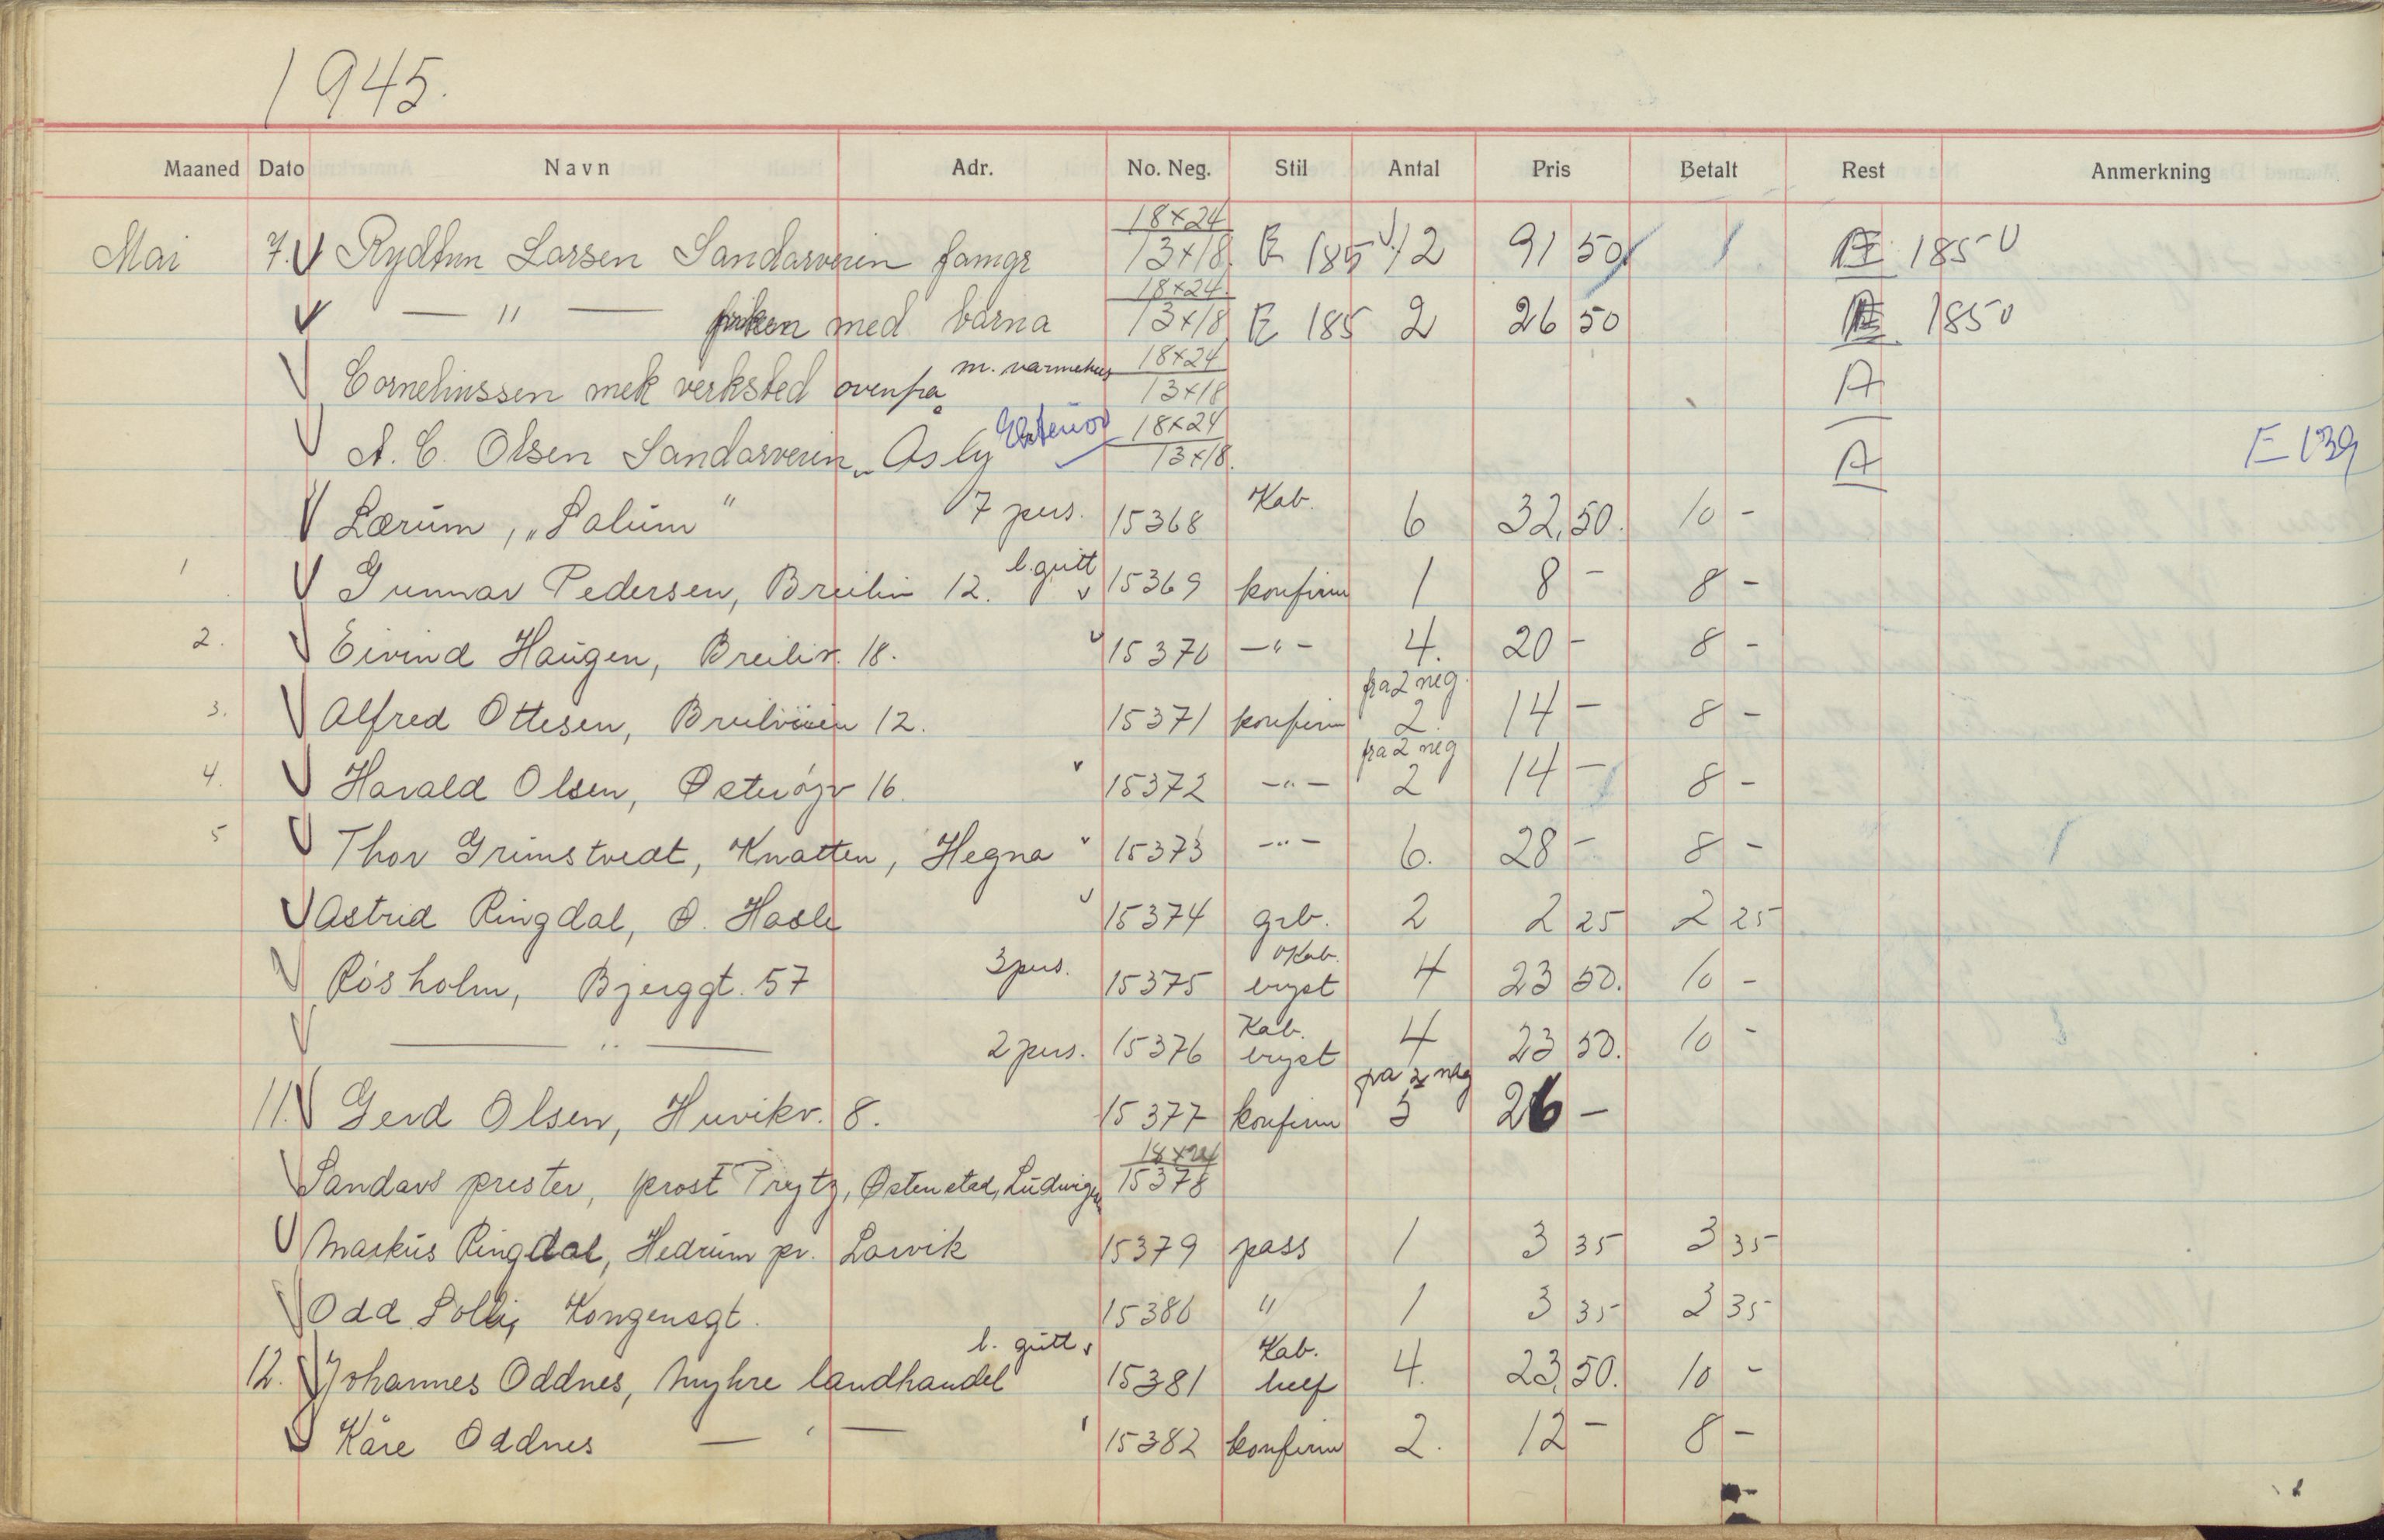 1945.
Maaned Dato Navn Adr. No. Neg. Stil Antal Pris Betalt Rest Anmerkning
18x24
Mai 7. Larsen Sandarveien famgr 13x18 E 185 12 91 50 1850
18x24
— " — med barna 13x18 E 185 2 26 50 1850
m. varmehus 18x24
Corneliussen mek verksted ovenfra 13x18 A
Exteriør 18x24
A. C. Olsen Sandarveien „Åsly 13x18. A E 139
Lærum, „Solum" 7 pers. 15368 Kab. 6 32,50. 10 -
l. gutt
1 Gunnar Pedersen, Breiliv 12. 15369 konfirm 1 8 - 8 -
2. Eivind Haugen, Breiliv. 18. 15370 -"- 4. 20 - 8 -
fra 2 neg.
3. Alfred Ottesen, Breiliveien 12. 15371 konfirm 2 14 - 8 -
fra 2 neg
4. Harald Olsen, Østerøyv 16. 15372 -"- 2 14 - 8 -
5 Thor Grimstvedt, Knatten, Hegna 15373 -"- 6. 28 - 8 -
Astrid Ringdal, Ø. Hasle 15374 grb. 2 2 25 2 25
Kab.
Rösholm, Bjerggt. 57 3 pers. 15375 bryst 4 23 50. 10 -
Kab.
— " — 2 pers. 15376 bryst 4 23 50. 10 -
fra 2 neg
11. Gerd Olsen, Huvikv. 8. 15377 konfirm 5 26 -
18x24
Sandars prester, prost Trytz, Østenstad, 15378
Markus Ringdal, Hedrum pr. Larvik 15379 pass 1 3 35 3 35
Odd Kongensgt. 15380 " 1 3 35 3 35
l. gutt Kab.
12. Johannes Oddnes, Myhre landhandel 15381 4. 23,50. 10 -
Kåre Oddnes — " — 15382 konfirm 2. 12 - 8 -